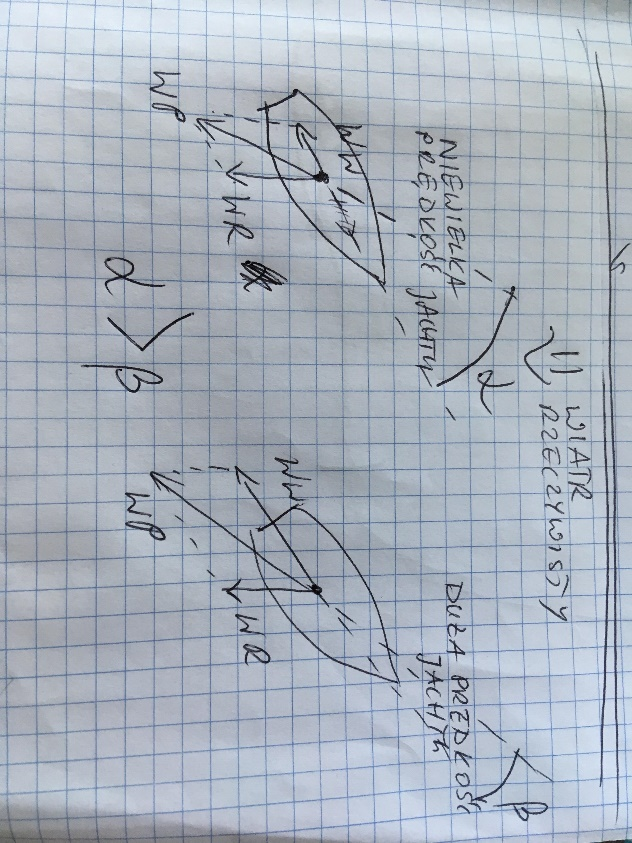 WIATR
RZECZYWISTY
NIEWIELKA
PRĘDKOŚĆ JACHTU
α
WW
WR
WP
DUŻA PRĘDKOŚĆ
JACHTU
β
WW
WR
WP
α > β